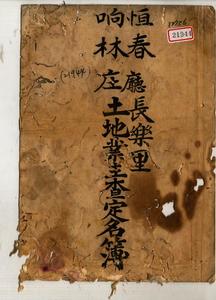 恒春廳長樂里
响林庄土地業主查定名簿
21944
(21944)